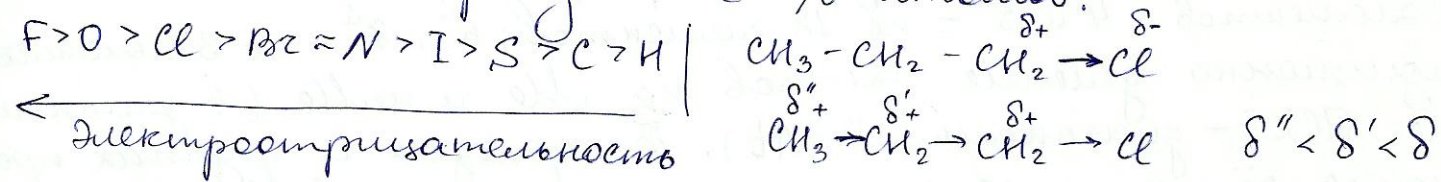 F > O > Cl > Br ≈ N > I > S > C > H
Электроотрицательность
δ+ δ-
CH₃ - CH₂ - CH₂ → Cl
δ''+ δ'+ δ+
CH₃ → CH₂ → CH₂ → Cl δ'' < δ' < δ